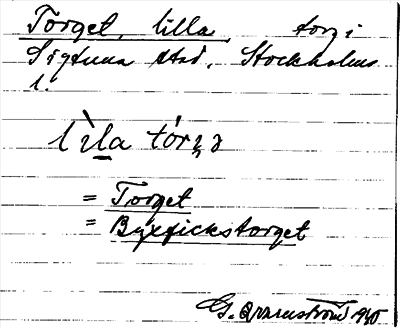 Torget, lilla torg i
Sigtuna stad, Stockholms
l.
lìla tórꞬə
= Torget
= Byxfickstorget
G. Qvarnström 1940